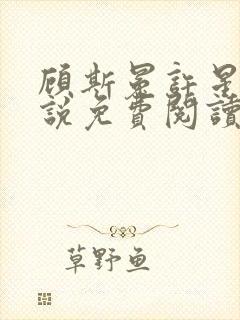 顾斯晏許星
說免費閱讀
草野鱼